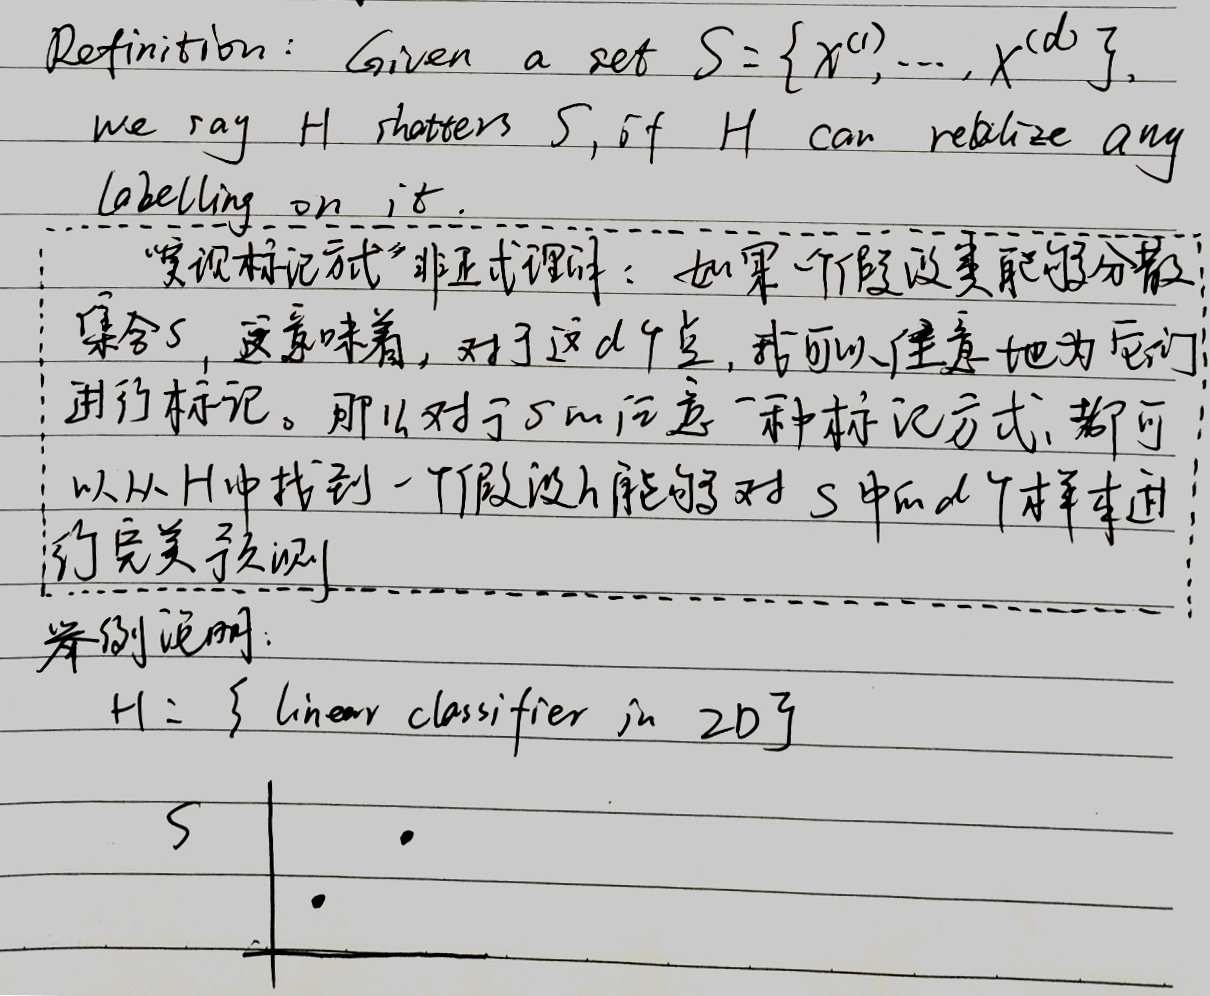 Definition: Given a set S={x⁽¹⁾,…,x⁽ᵈ⁾},
we say H shatters S, if H can realize any
labelling on it.
“实现标记方式”非正式理解：如果一个假设类能够分散
集合S，这意味着，对于这d个点，我可以任意地为它们
进行标记。那么对于S的任意一种标记方式，都可
以从H中找到一个假设h能够对S中的d个样本进
行完美预测
举例说明：
H = { linear classifier in 2D}
S